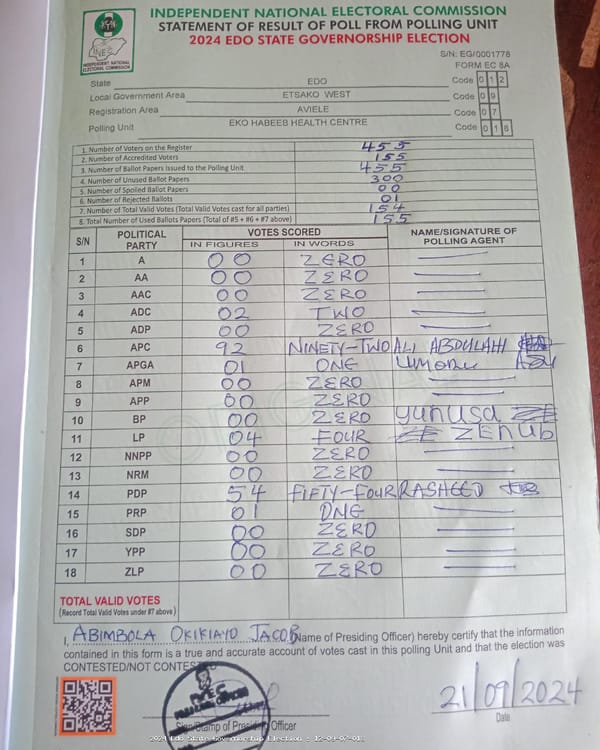 INDEPENDENT NATIONAL ELECTORAL COMMISSION
STATEMENT OF RESULT OF POLL FROM POLLING UNIT
2024 EDO STATE GOVERNORSHIP ELECTION
INEC
INDEPENDENT NATIONAL ELECTORAL COMMISSION
S/N: EG/0001778
FORM EC 8A
State EDO Code 0 1 2
Local Government Area ETSAKO WEST Code 0 9
Registration Area AVIELE Code 0 7
Polling Unit EKO HABEEB HEALTH CENTRE Code 0 1 6
1. Number of Voters on the Register 455
2. Number of Accredited Voters 155
3. Number of Ballot Papers Issued to the Polling Unit 455
4. Number of Unused Ballot Papers 300
5. Number of Spoiled Ballot Papers 00
6. Number of Rejected Ballots 01
7. Number of Total Valid Votes (Total Valid Votes cast for all parties) 154
8. Total Number of Used Ballots Papers (Total of #5 + #6 + #7 above) 155
S/N POLITICAL PARTY VOTES SCORED NAME/SIGNATURE OF POLLING AGENT
IN FIGURES IN WORDS
1 A 00 ZERO
2 AA 00 ZERO
3 AAC 00 ZERO
4 ADC 02 TWO
5 ADP 00 ZERO
6 APC 92 NINETY-TWO ALI ABDULAHI
7 APGA 01 ONE Umoru
8 APM 00 ZERO
9 APP 00 ZERO
10 BP 00 ZERO yunusa
11 LP 04 FOUR ZENUB
12 NNPP 00 ZERO
13 NRM 00 ZERO
14 PDP 54 FIFTY-FOUR RASHEED
15 PRP 01 ONE
16 SDP 00 ZERO
17 YPP 00 ZERO
18 ZLP 00 ZERO
TOTAL VALID VOTES
(Record Total Valid Votes under #7 above)
I, ABIMBOLA OKIKIAYO JACOB (Name of Presiding Officer) hereby certify that the information
contained in this form is a true and accurate account of votes cast in this polling Unit and that the election was
CONTESTED/NOT CONTESTED
21/09/2024
Sign/Stamp of Presiding Officer
Date